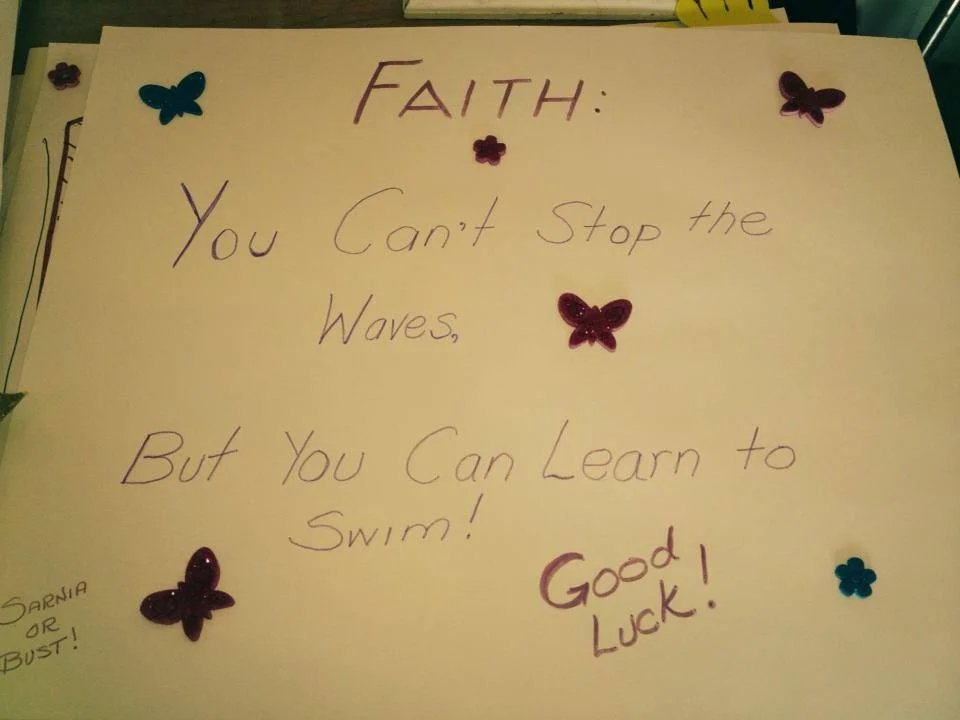 FAITH:
You Can't Stop the
Waves,
But You Can Learn to
Swim!
Good
Luck!
SARNIA
OR
BUST!